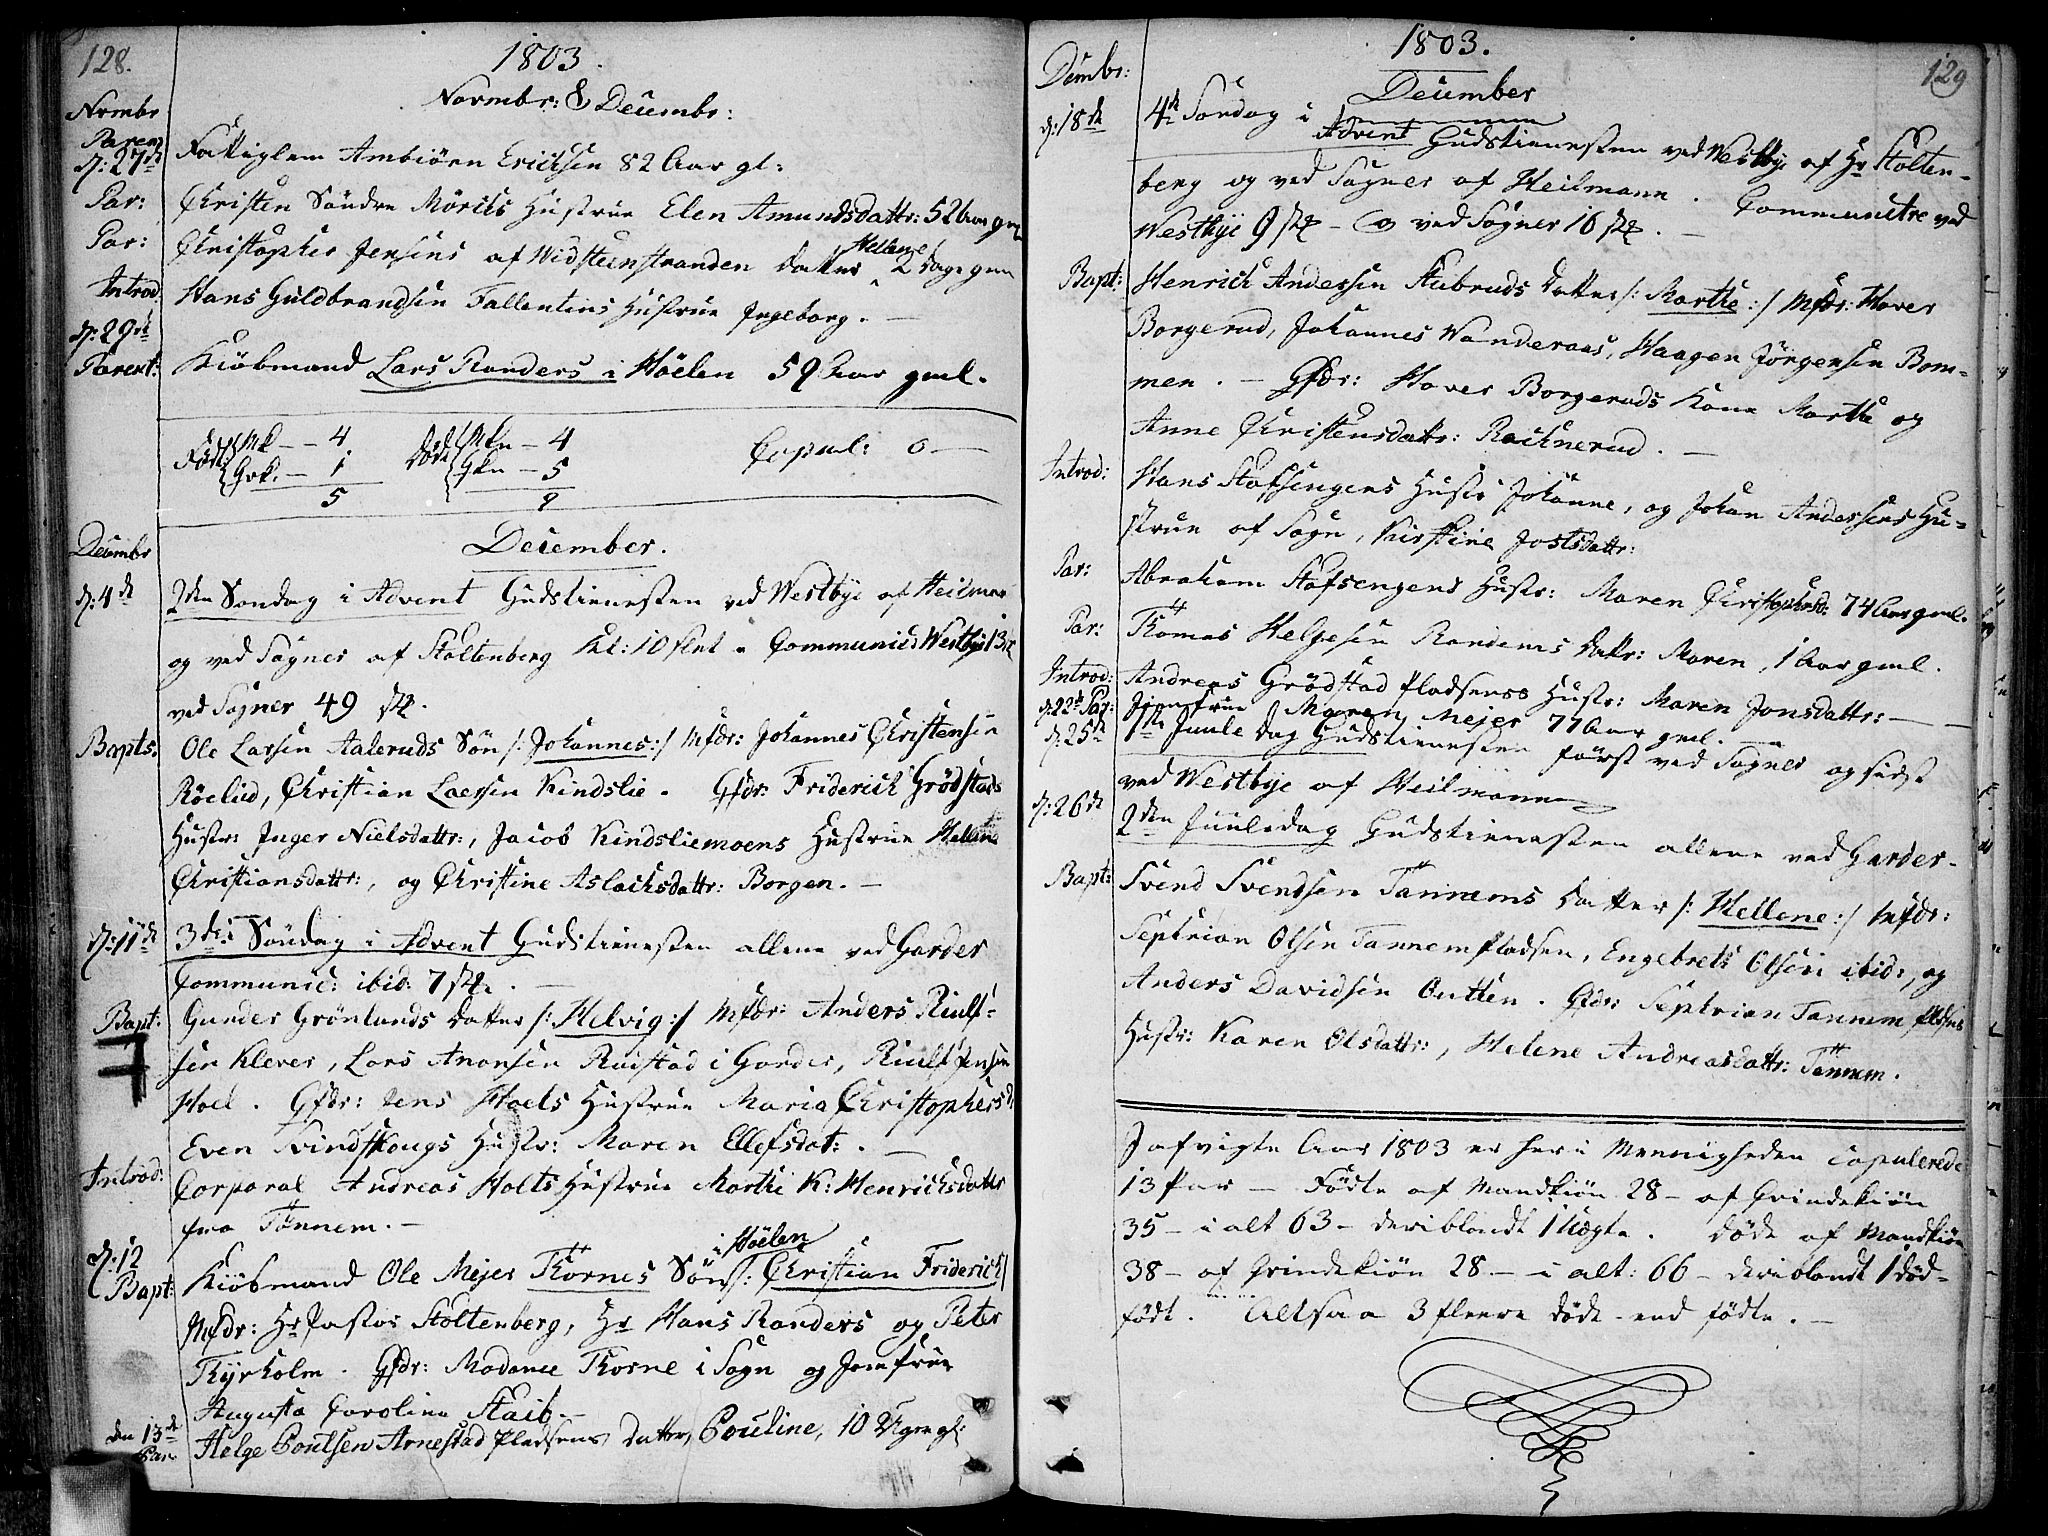 128.
1803.
Novembr: & Decembr:
Novmbr
Parent
d: 27de Fattiglem Ambiörn Ericksen 82 Aar gl:
Par: Christen Söndre Mörchs Hustrue Elen Amundsdattr: 52 Aar gml
Par: Christopher Jensens af Widsteenstranden Datter Hellene 2 Dage gml
Introd Hans Guldbrandsen Fallentins Hustrue Ingeborg. —
d: 29de
Parent: Kiöbmand Lars Randers i Höelen 59 Aar gml.
Födte Mk — 4 Döde Mkn — 4 Copul: 0 —
Qvk. — 1 Qkn — 5
5 9
December.
Decembr
d: 4de 2den Söndag i Advent Gudstienesten ved Westbye af Heilman
og ved Sogner af Stoltenberg Kl: 10 slut. Communic: Westbye 13 st
ved Sogner 49 st.
Bapts: Ole Larsen Aaleruds Sön /: Johannes :/ Mfdr: Johannes Christensen
Röelud, Christian Larsen Kindslie. Qfdr: Friderich Grödstads
Hustr: Inger Nielsdattr:, Jacob Kindsliemoens Hustrue Hellene
Christiansdattr:, og Christine Aslachsdattr: Borgen. —
d: 11de 3die Söndag i Advent Gudstienesten allene ved Garder
Communic: ibid: 7 st. —
Bapt: Gunder Grönlunds Datter /: Helvig :/ Mfdr: Anders Riulf-
sen Klever, Lars Anonsen Ruistad i Garder, Riulf Jensen
Hoel. Qfdr: Jens Hoels Hustrue Maria Christophersd:
Even Svindskougs Hustr: Maren Ellefsdat: . —
Introd: Corporal Andreas Holts Hustrue Marthe K: Henrichsdatter
fra Tönnem. —
d: 12
Bapt: Kiöbmand Ole Mejer Thornes i Höelen Sön /: Christian Friderich/
Mfdr: Hr Pastor Stoltenberg, Hr Hans Randers og Peter
Thyrholm. Qfdr: Madame Thorne i Sogn og Jomfrue
Augusta Carolina Staib. —
den 13de
Par. Helge Poulsen Arnestad Pladsens Datter, Pouline, 10 Uger gl:
129
1803.
December
Decmbr:
d: 18de 4de Söndag i Advent Gudstienesten ved Westbye af Hr Stolten-
berg og ved Sogner af Heilmann. Communicere ved
Westbye 9 st — og ved Sogner 16 st. —
Bapt: Henrich Andersen Stubruds Datter /: Marthe :/ Mfdr: Haver
Borgerud, Johannes Wanderaas, Haagen Jörgensen Bom-
men. — Qfdr: Haver Borgeruds Kone Marthe og
Anne Christensdattr: Rachnerud. —
Introd: Hans Stafsengens Hustr Johanne, og Johan Andersens Hu-
strue af Sogn, Kirstine Jostsdattr:
Par: Abraham Stafsengens Hustr: Maren Christophersd: 74 Aar gml.
Par: Thomas Helgesen Randems Dattr: Maren, 1 Aar gml.
Introd: Andreas Grödstad Pladsens Hustr: Maren Jonsdattr: —
d: 22de Par: Jomfrue Maren Mejer 77 Aar gml. —
d: 25de 1ste Juule Dag Gudstienesten först ved Sogner og sidst
ved Westbye af Heilmann
d: 26de 2den Juuledag Gudstienesten allene ved Garder.
Bapt: Svend Svendsen Tannems Datter /: Hellene :/ Mfdr:
Septrian Olsen Tannem Pladsen, Engebret Olsen ibid:, og
Anders Davidsen Outten. Qfdr: Septrian Tannem Pladsens
Hustr: Karen Olsdattr:, Helene Andreasdattr: Tannem.
I afvigte Aar 1803 er her i Menigheden copulerede
13 Par — Födte af Mandkiön 28 — af Qvindekiön
35 — i alt 63 — deriblandt 1 Uægte. Döde af Mandkiön
38 — af Qvindekiön 28 — i alt: 66 — deriblandt 1 död-
födt. Altsaa 3 fleere döde end födte. —